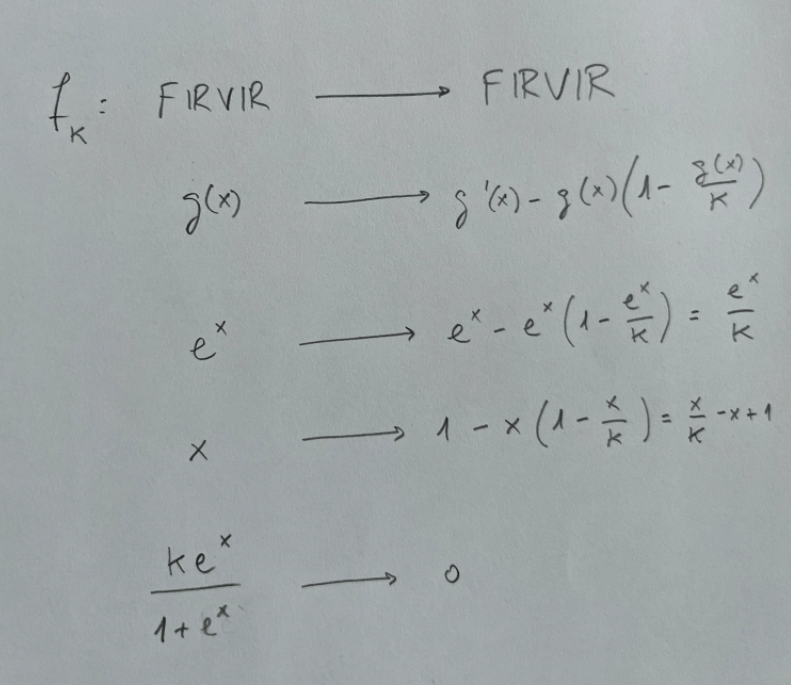 f_K : FIRVIR ⟶ FIRVIR
g(x) ⟶ g'(x) - g(x)(1 - g(x)/K)
e^x ⟶ e^x - e^x(1 - e^x/K) = e^x/K
x ⟶ 1 - x(1 - x/K) = x/K - x + 1
Ke^x/(1 + e^x) ⟶ 0